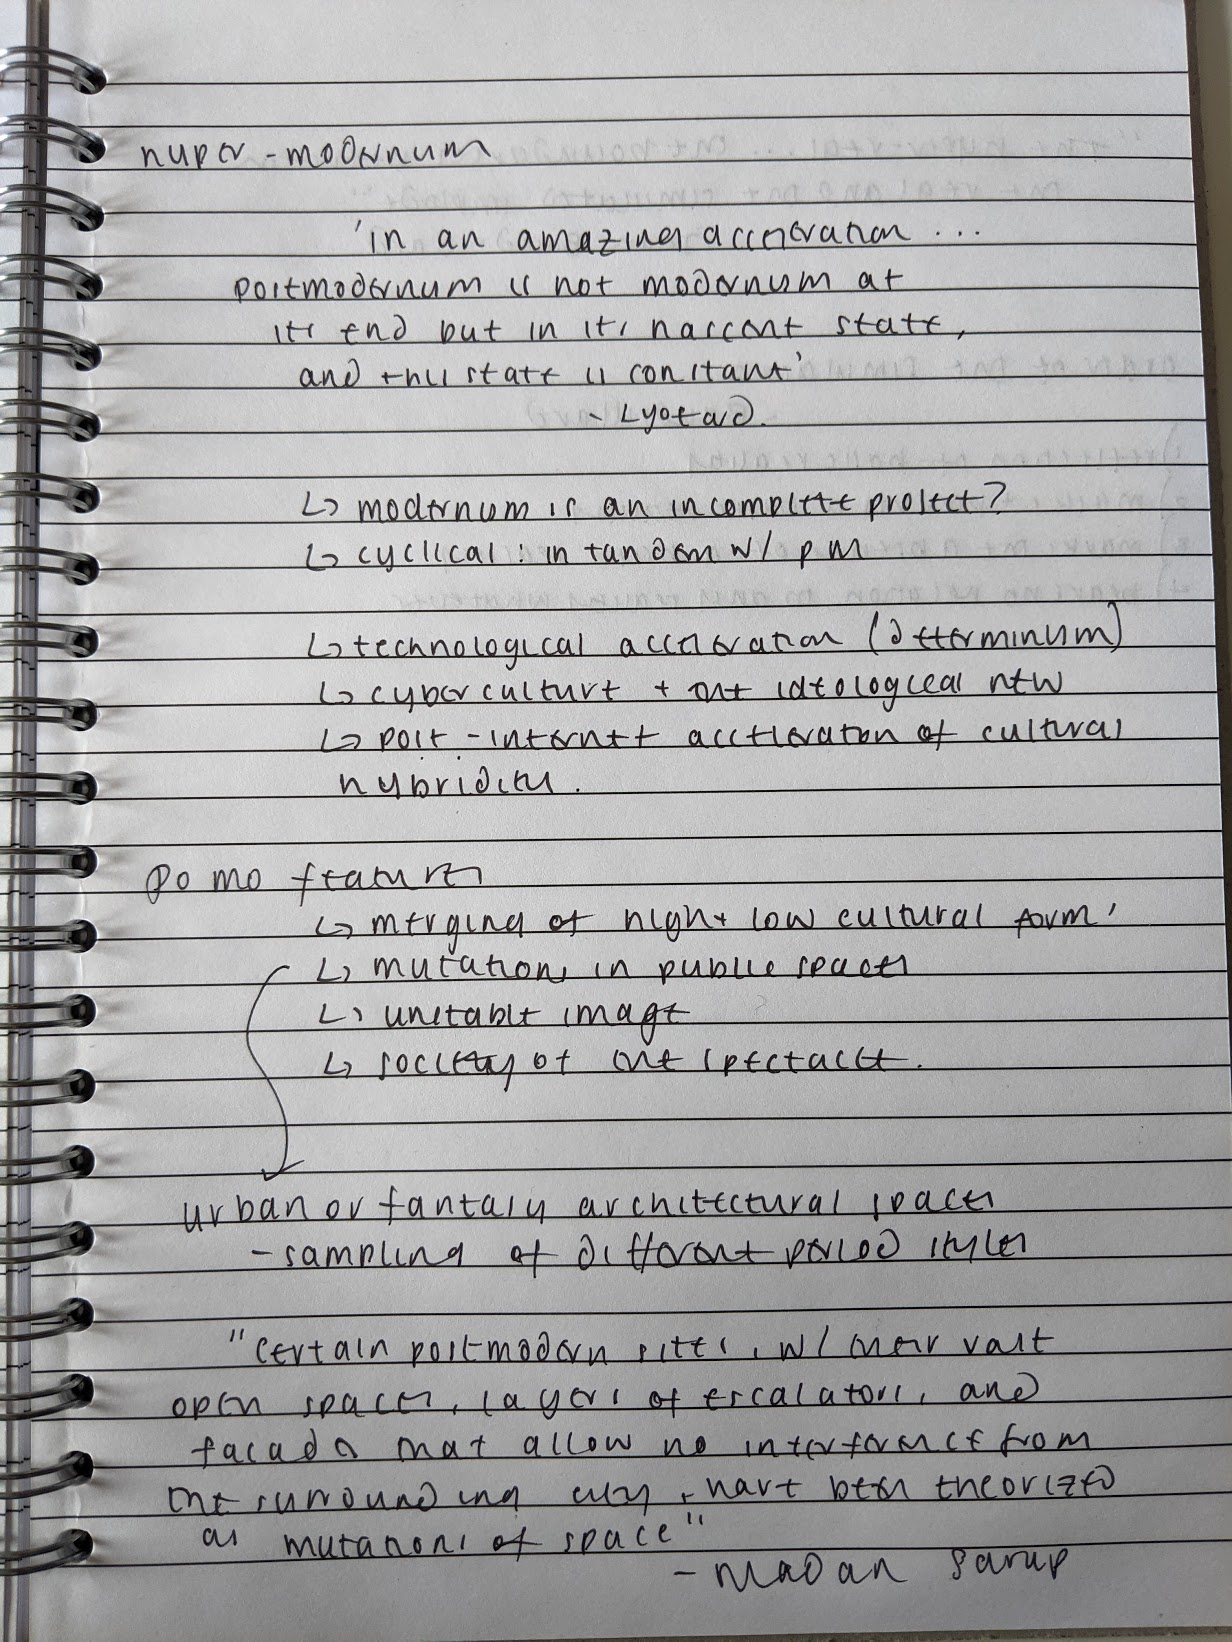 hyper-modernism
'in an amazing acceleration ...
postmodernism is not modernism at
its end but in its nascent state,
and this state is constant'
- Lyotard.
↳ modernism is an incomplete project?
↳ cyclical : in tandem w/ pm
↳ technological acceleration (determinism)
↳ cyberculture + the ideological new
↳ post-internet acceleration of cultural
hybridity.
Pomo features
↳ merging of high + low cultural forms
↳ mutations in public spaces
↳ unstable image
↳ society of the spectacle.
urban or fantasy architectural spaces
- sampling of different period styles
"Certain postmodern sites, w/ their vast
open spaces, layers of escalators, and
facades that allow no interference from
the surrounding city, have been theorized
as mutations of space"
- Madan Sarup